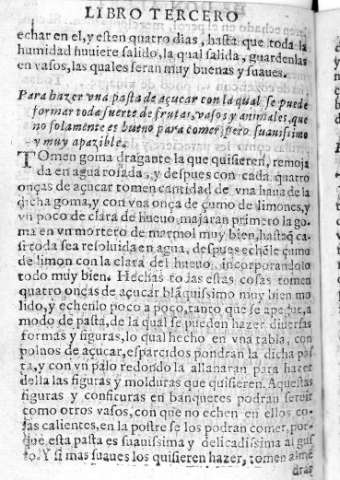 LIBRO TERCERO
echar en el, y esten quatro dias, hasta que toda la
humidad huuiere salido, la qual salida, guardenlas
en vasos, las quales seran muy buenas y suaues.
Para hazer vna pasta de açucar con la qual se puede
formar toda suerte de frutas, vasos y animales, que
no solamente es bueno para comer, pero suauissimo
y muy apazible.
TOmen goma dragante la que quisieren, remoja
da en agua rosada, y despues con cada quatro
onças de açucar tomen cantidad de vna haua de la
dicha goma, y con vna onça de çumo de limones, y
vn poco de clara de hueuo, majaran primero la go-
ma en vn mortero de marmol muy bien, hastaq̃ ca-
si toda sea resoluida en agua, despues echẽle çumo
de limon con la clara del hueuo, incorporandolo
todo muy bien. Hechas todas estas cosas tomen
quatro onças de açucar blãquissimo muy bien mo
lido, y echenlo poco a poco, tanto que se apegue, a
modo de pasta, de la qual se pueden hazer diuersas
formas y figuras, lo qual hecho en vna tabla, con
poluos de açucar, esparcidos pondran la dicha pas-
ta, y con vn palo redondo la allanaran para hazer
della las figuras y molduras que quisieren. Aquestas
figuras y confituras en banquetes podran seruir
como otros vasos, con que no echen en ellos co-
sas calientes, en la postre se los podran comer, por-
que esta pasta es suauissima y delicadissima al gus
to. Y si mas suaues los quisieren hazer, tomen alme
dras